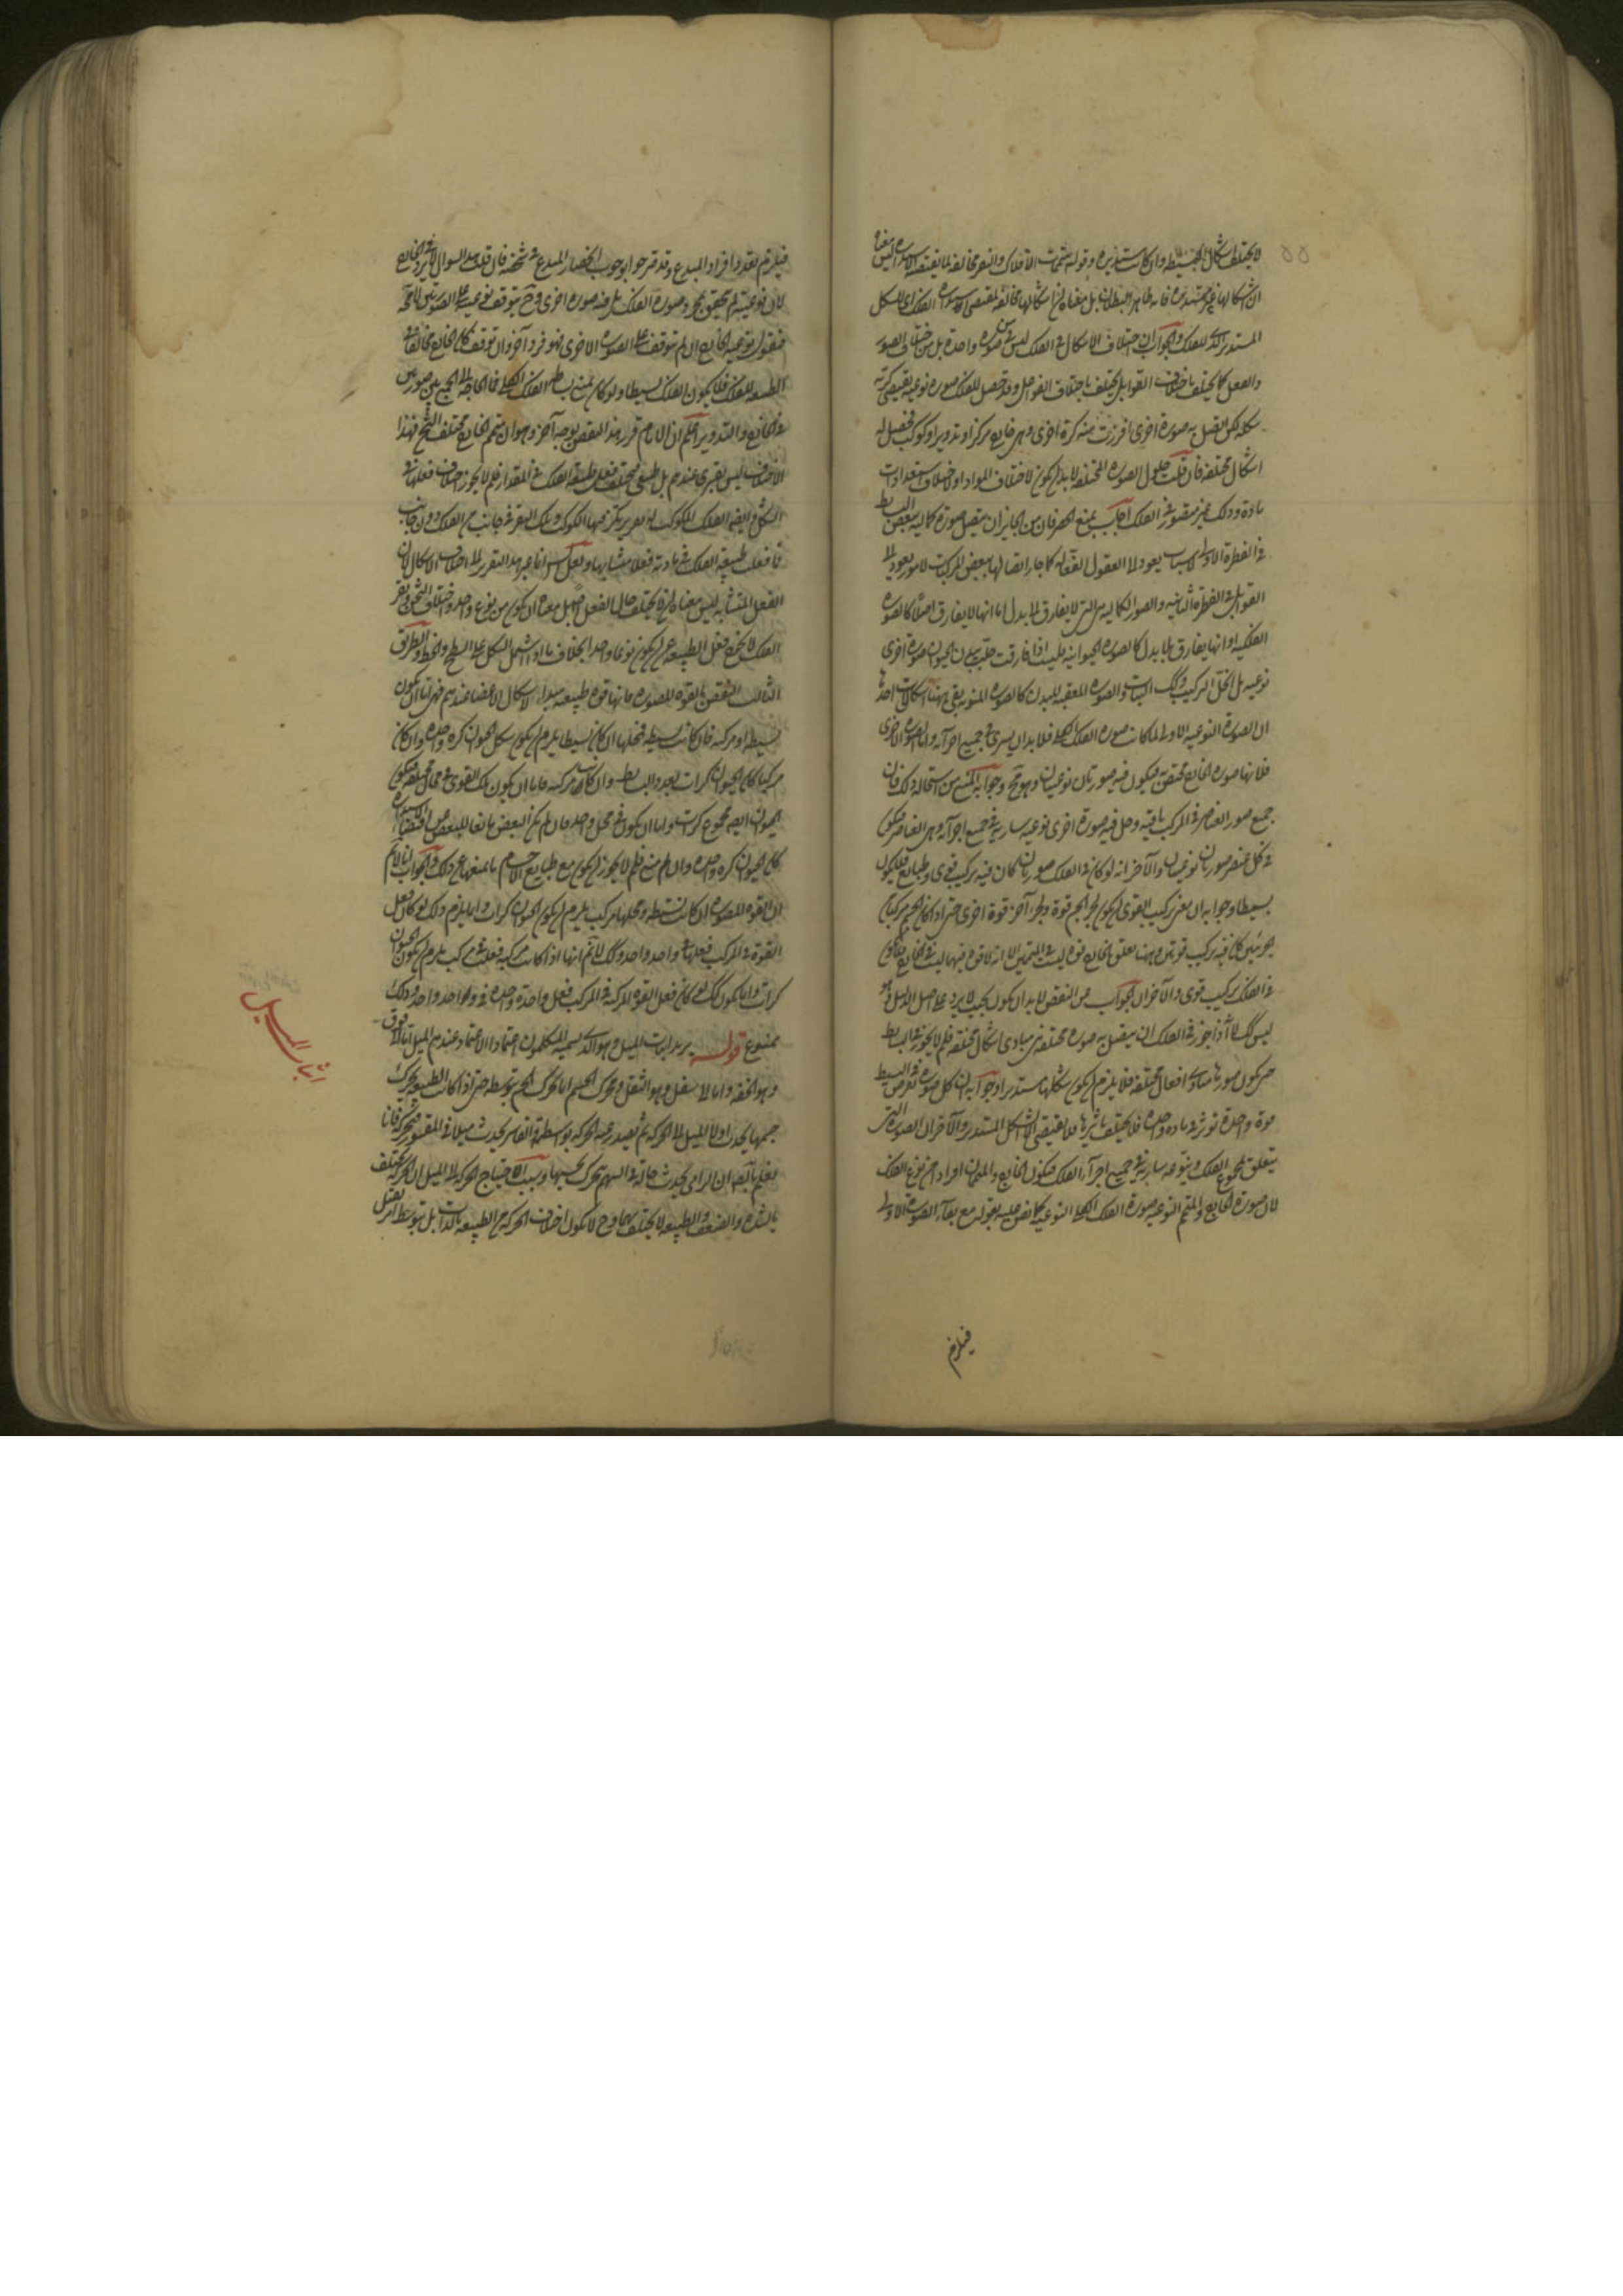 لا يختلف اشكال البسيطه وان كانت مستديره وقوله متممات الافلاك والنقر مخالفه لما يقتضيه الاستداره ليس معناه
ان اشكالها غير مستديره فانه ظاهر البطلان بل معناه ان اشكالها مخالفة لمقتضى الفلك اى الشكل
المستدير الذى للفلك والجواب ان اختلاف الاشكال فى الفلك ليس من صوره واحدة بل من اختلاف الصور
والفعل كما يختلف باختلاف القوابل يختلف باختلاف الفواعل وقد تحصل للفلك صوره نوعيه يقتضى كرية
شكله لكن اتصل به صورة اخرى افرزت منه كرة اخرى وهى خارج مركز او تدوير او كوكب فحصل له
اشكال مختلفه فان قلت حلول الصوره المختلفه لا بد ان يكون لاختلاف المواد او لاختلاف استعدادات
مادة وذلك غير متصور فى الفلك اجاب بمنع الحصر فان من الجايز ان يتصل صورة كمالية ببعض البسايط
فى الفطرة الاولى لاسباب يعود الى العقول الفعاله كما جاز اتصالها ببعض المركبات لامور يعود الى
القوابل فى الفطرة الثانيه والصور الكماليه هى التى لا يفارق الا ببدل اما انها لا يفارق اصلا كالصوره
الفلكيه او انها يفارق بلا بدل كالصوره الحيوانيه فليست اذا فارقت حلت ببدن الحيوان صورة اخرى
نوعيه بل انحل التركيب وكذلك النبات والصوره المعقبه للبدل كالصوره المنويه بقى ههنا اشكالات احدها
ان الصورة النوعيه الاولى لما كانت صوره الفلك الكلى فلا بد ان يسرى فى جميع اجزائه واما الصوره الاخرى
فلانها صوره الخارج مختصة به فيكون فيه صورتان نوعيتان وهو مح وجوابه المنع من استحالة ذلك فان
جميع صور العناصر فى المركب باقيه وحل فيه صورة اخرى نوعيه سارية فى جميع اجزائه وهى العناصر فيكون
فى كل عنصر صورتان نوعيتان والآخر انه لو كان فى الفلك صورتان لكان فيه تركيب قوى وطبايع فلا يكون
بسيطا وجوابه ان معنى تركيب القوى ان يكون لجزء الجسم قوة ولجزء آخر قوة اخرى حتى اذا كان الجسم مركبا من
جزئين كان فيه تركيب قوتين وههنا تعلق بالخارج قوه ليست فى المتممين الا انه لا قوه فيهما ليست فى الخارج فلا يكون
فى الفلك تركيب قوى والآخر ان الجواب عن النقض لا بد ان يكون بحيث لا يرد على اصل الدليل وهو
ليس كذلك لانا اذا جوزنا فى الفلك ان يتصل به صوره مختلفه هى مبادى اشكال مختلفه فلم لا يجوز فى البسايط
حتى يكون صورتها مبادى افعال مختلفه فلا يلزم ان يكون شكلها مستديرا وجوابه ان كل صوره تفرض فى البسيط
قوة واحدة تؤثر فى مادة واحده فلا يختلف تاثيرها فلا يقتضى الا الشكل المستدير والآخر ان الصوره التى
يتعلق بمجموع الفلك وبنوعه سارية فى جميع اجزاء الفلك فيكون الخارج والمتممان افرادا من نوع الفلك
لان صورة الخارج والمتمم النوعيه صورة الفلك الكلى النوعيه كما نص عليه بقوله مع بقاء الصورة الاولى
فيلزم
فيلزم تعدد افراد المبدع وقد تقرر جوابه وجوب انحصار المبدع فى شخصه فان قلت هذا السوال لا يرد فى الخارج
لان نوعيته لم يتحقق بمجرد صورة الفلك بل منه صوره اخرى وح يتوقف نوعيته على الصورتين لا محة
فنقول نوعيه الخارج ان لم يتوقف على الصوره الاخرى فهو فرد آخر وان توقف كان الخارج مخالفا فى
الطبيعه للفلك فلا يكون الفلك بسيطا ولو كان يمنع بساطة الفلك الكلى فما الحاجه الى الجمع بين صورتين
فى الخارج والتدوير واعلم ان الامام قرر هذا النقض بوجه آخر وهو ان متمم الخارج مختلف الثخن فهذا
الاختلاف ليس بقسرى عندهم بل طبيعى فيختلف فعل طبيعه الفلك فى المقدار فلم لا يجوز اختلاف فعلها فى
الشكل وايضا الفلك المكوكب او التدوير يتركز فيها الكوكب وتلك النقره فى جانب من الفلك دون جانب
فما فعلت طبيعة الفلك فى مادته فعلا متشابها ولعل الشيخ انما غير هذا التقرير الى اختلاف الاشكال لان
الفعل المتشابه ليس معناه ان لا يختلف حال الفعل اصلا بل معناه ان يكون من نوع واحد واختلاف الثخن ونقر
الفلك لا يخرج فعل الطبيعه عن ان يكون نوعا واحدا بخلاف ما اذا اشتمل الشكل على السطح والخط والطريق
الثالث النقض بالقوه المصوره فانها قوه طبيعيه مبدا لاشكال الاعضا عندهم فهى اما ان يكون
بسيطه او مركبه فان كانت بسيطه فمحلها ان كان بسيطا يلزم ان يكون شكل الحيوان كره واحدة وان كان
مركبا كان الحيوان كرات بعدد البسايط وان كانت مركبه فاما ان يكون تلك القوى فى محال مختلفه فيكون
الحيوان ايضا مجموع كرات واما ان يكون فى محل واحد فان لم يكن البعض مانعا للبعض عن اقتضاء الكره
كان الحيوان كره واحده وان لم يمنع فلم لا يجوز ان يكون مع طبايع الاجسام ما يمنعها عن ذلك والجواب انا لا نم
ان القوه المصوره ان كانت بسيطه ومحلها مركب يلزم ان يكون الحيوان كرات وانما يلزم ذلك لو كان فعل
القوة فى المركب فعلها فى واحد واحد وكذلك لا نم انها اذا كانت مركبه فعلت فى مركب يلزم ان يكون الحيوان
كرات وانما يكون كذلك لو كان فعل القوه المركبه فى المركب فعل واحدة واحده فى واحد واحد وذلك
ممنوع قوله يريد اثبات الميل وهو الذى يسميه المتكلمون اعتمادا الاعتماد عندهم الميل اما الى فوق
وهو الخفه واما الى اسفل وهو الثقل ومحرك الجسم انما يحرك الجسم بتوسطه حتى اذا كانت الطبيعه يحرك
جسمها يحدث اولا الميل الى الحركه ثم تصدر عنه الحركه بواسطة والقاسر يحدث ميلا فى المقسور فيتحرك فانا
نعلم بالضرورة ان الرامى يحدث حالة فى السهم يتحرك بحسبها وسبب الاحتياج الحركة الى الميل ان الحركة يختلف
بالشده والضعف والطبيعه لا يختلف بهما وح لا يكون اختلاف الحركه من الطبيعه بالذات بل بتوسط امر يقبل
اثبات الميل